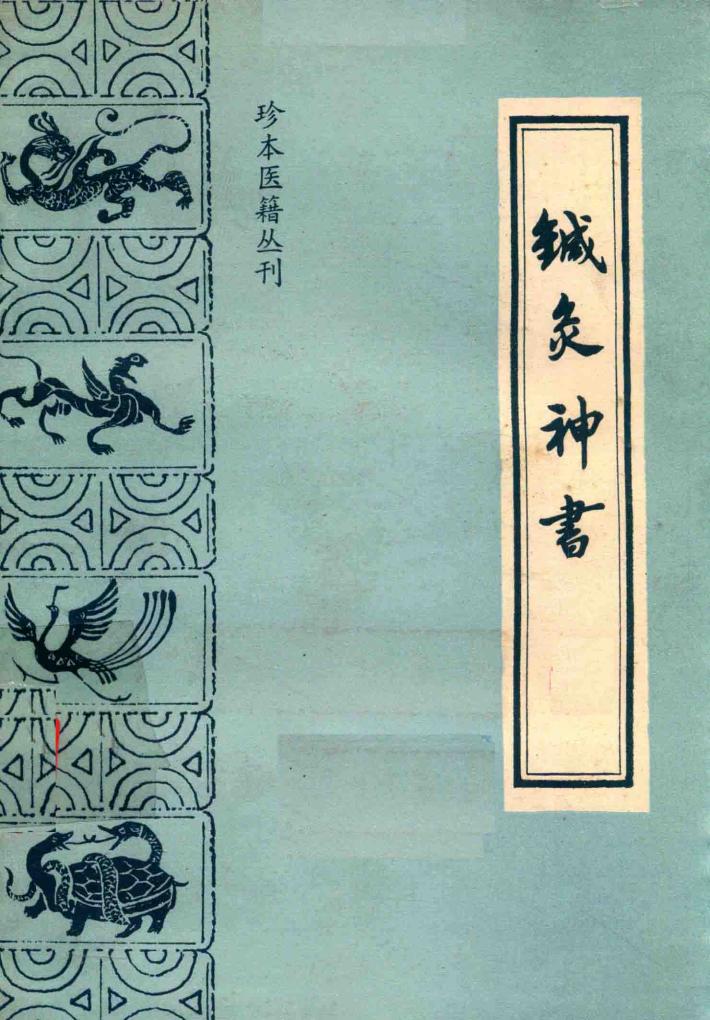 鍼灸神書
珍本医籍丛刊